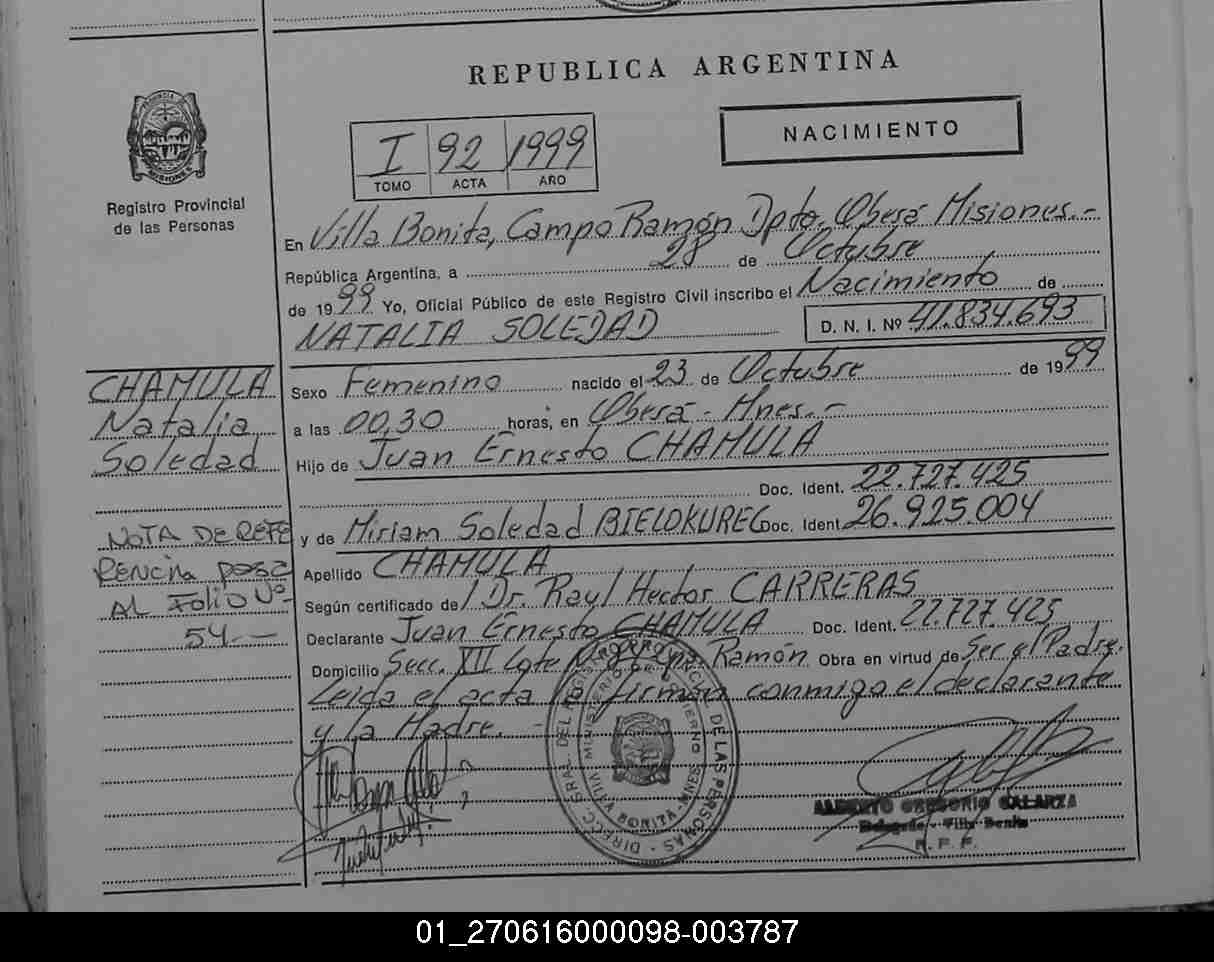 REPUBLICA ARGENTINA
NACIMIENTO
I 92 1999
TOMO ACTA AÑO
PROVINCIA DE MISIONES
Registro Provincial
de las Personas
En Villa Bonita, Campo Ramón Dpto. Oberá Misiones.-
República Argentina, a 28 de Octubre
de 1999 Yo, Oficial Público de este Registro Civil inscribo el Nacimiento de
NATALIA SOLEDAD D. N. I. Nº 41.834.693
CHAMULA
Natalia
Soledad
Sexo Femenino nacido el 23 de Octubre de 1999
a las 00,30 horas, en Oberá - Mnes.-
Hijo de Juan Ernesto CHAMULA
Doc. Ident. 22.727.425
y de Miriam Soledad BIELOKUREC Doc. Ident. 26.925.004
NOTA DE REFE
RENCIA PASA
AL FOLIO Nº
54.-
Apellido CHAMULA
Según certificado de / Dr. Raul Hector CARRERAS
Declarante Juan Ernesto CHAMULA Doc. Ident. 22.727.425
Domicilio Secc. XII Lote Ramón Obra en virtud de Ser el Padre.
Leida el acta la firman conmigo el declarante
y la Madre.-
DIRECC. GRAL. DEL REGISTRO PROVINCIAL DE LAS PERSONAS
MINISTERIO DE GOBIERNO
VILLA BONITA - MNES
ALBERTO GREGORIO GALARZA
Delegado - Villa Bonita
R. P. P.
01_270616000098-003787